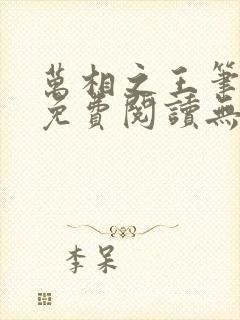 萬相之王筆
免費閱讀無
李呆